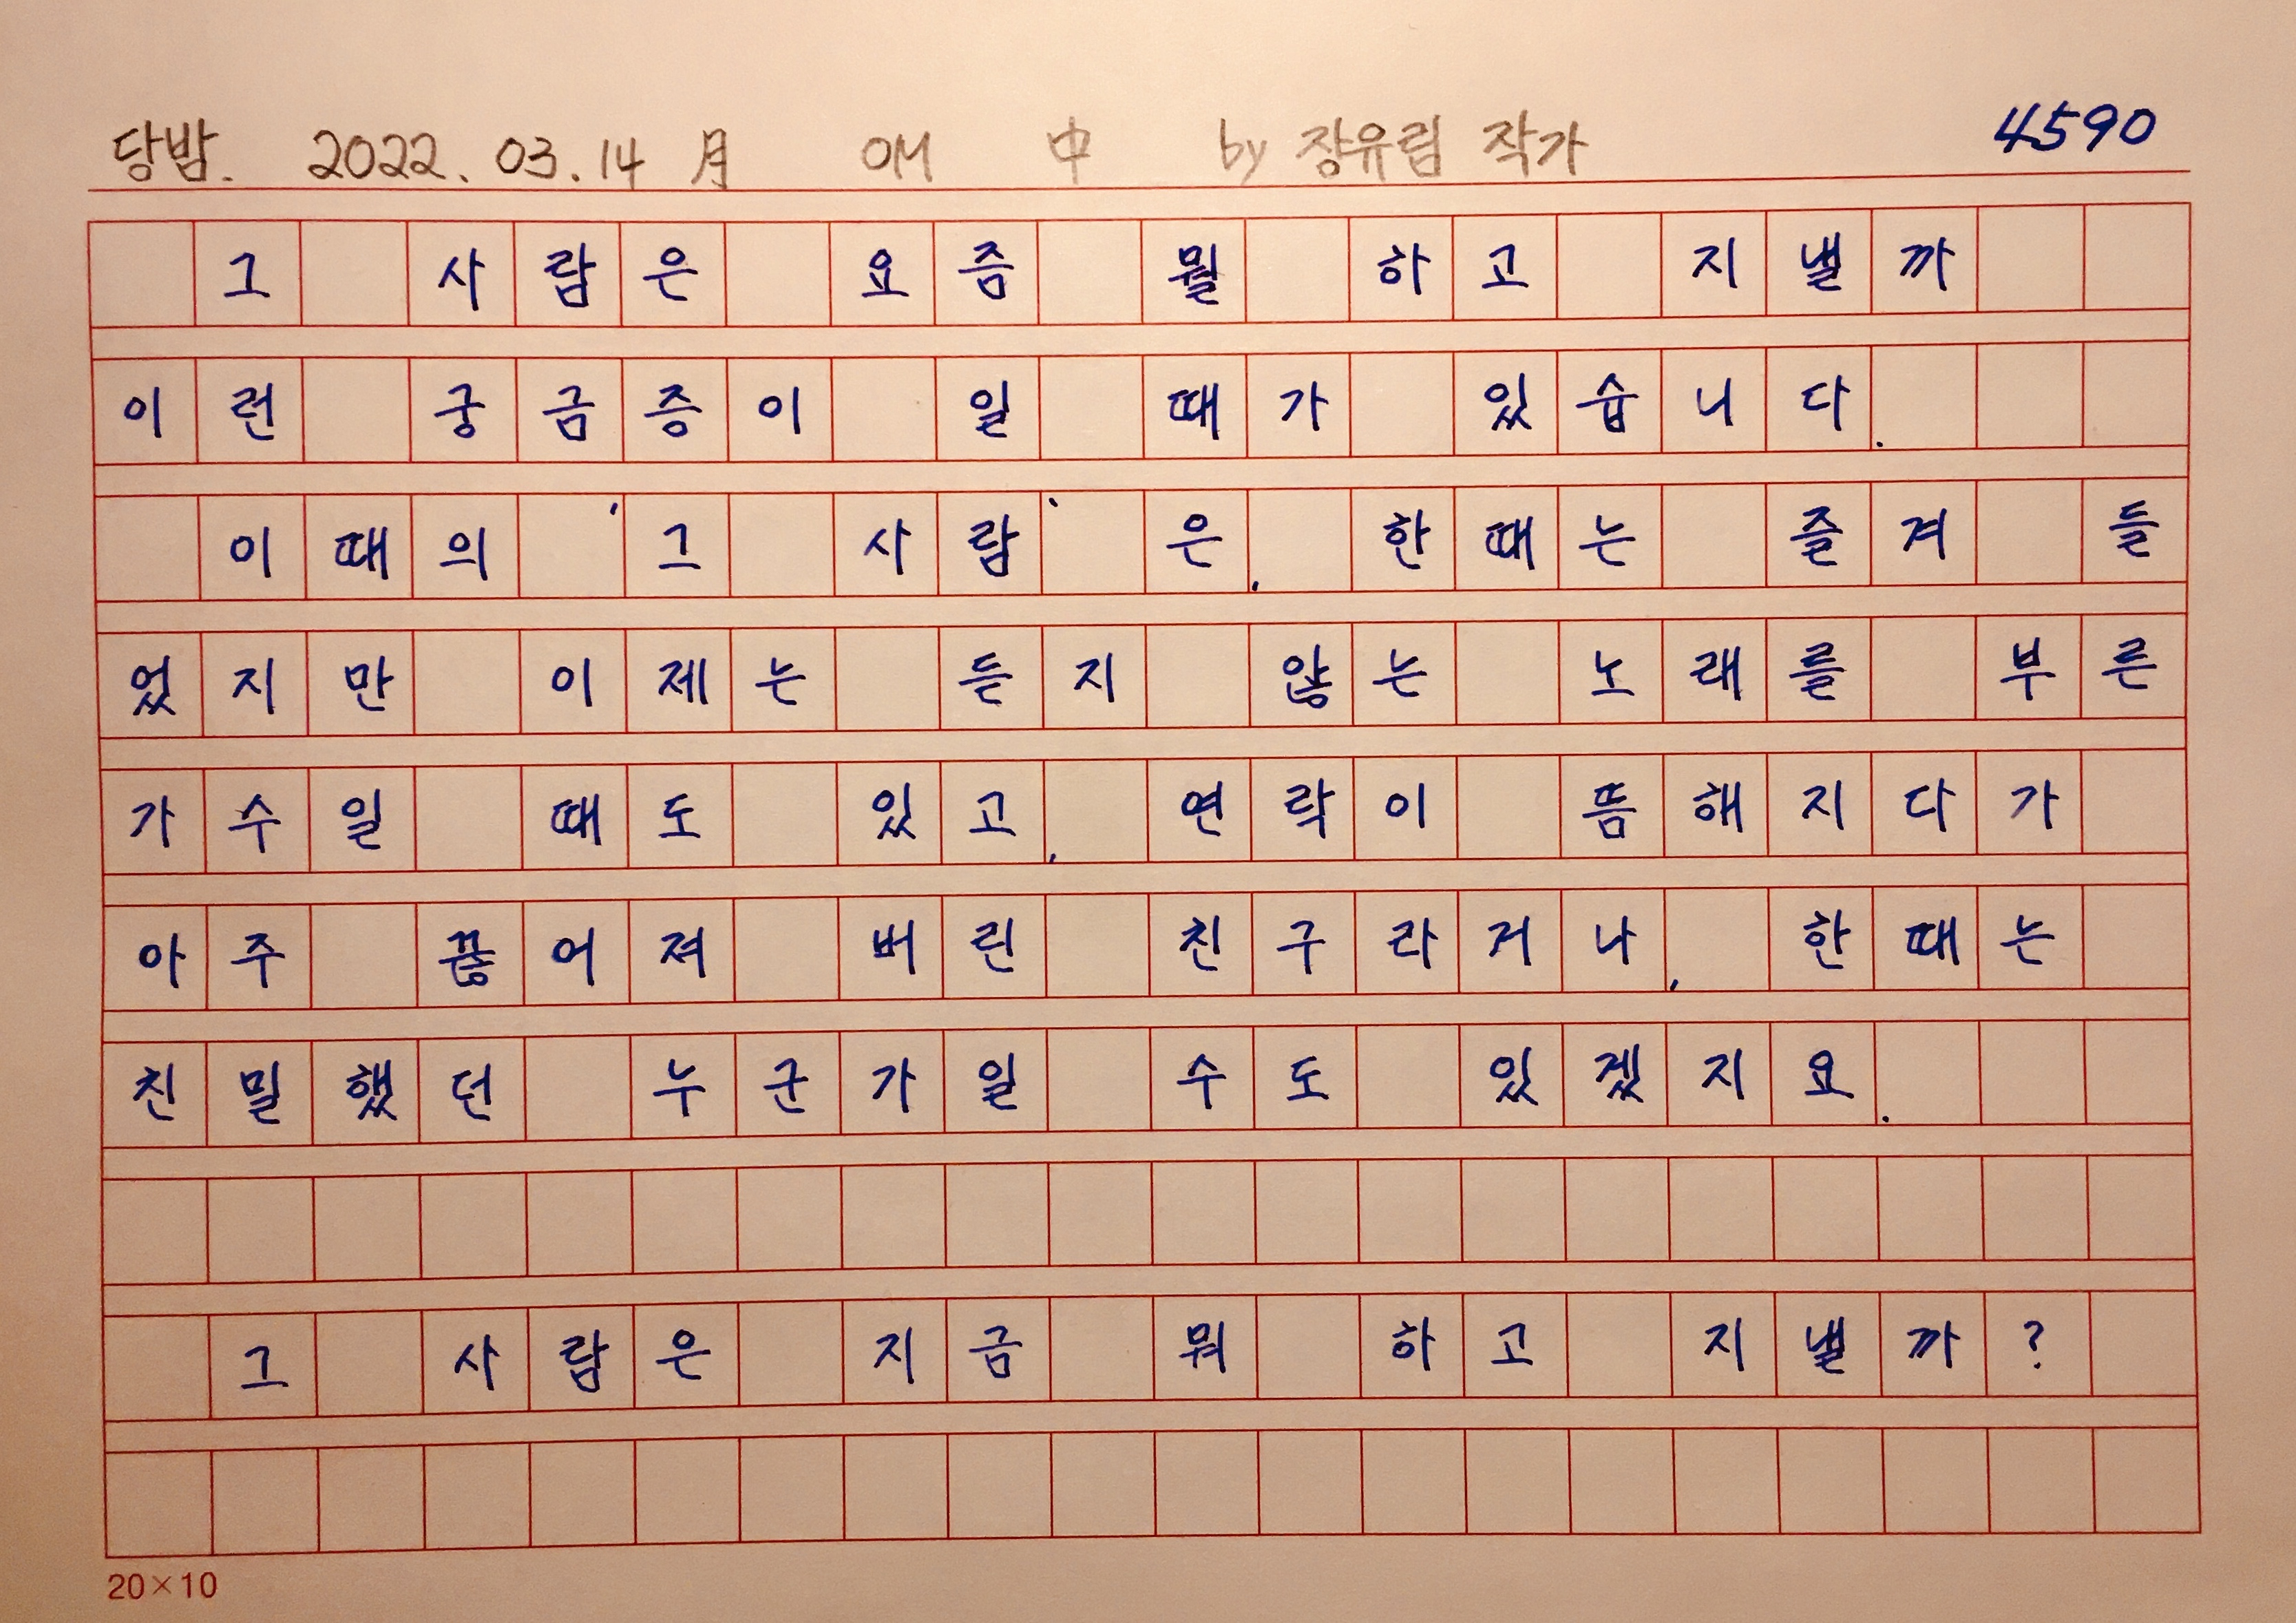 당밤. 2022. 03. 14 月 OM 中 by 장유림 작가 4590
그 사람은 요즘 뭘 하고 지낼까
이런 궁금증이 일 때가 있습니다.
이때의 '그 사람'은, 한때는 즐겨 들
었지만 이제는 듣지 않는 노래를 부른
가수일 때도 있고, 연락이 뜸해지다가
아주 끊어져 버린 친구라거나, 한때는
친밀했던 누군가일 수도 있겠지요.
그 사람은 지금 뭐 하고 지낼까?
20×10